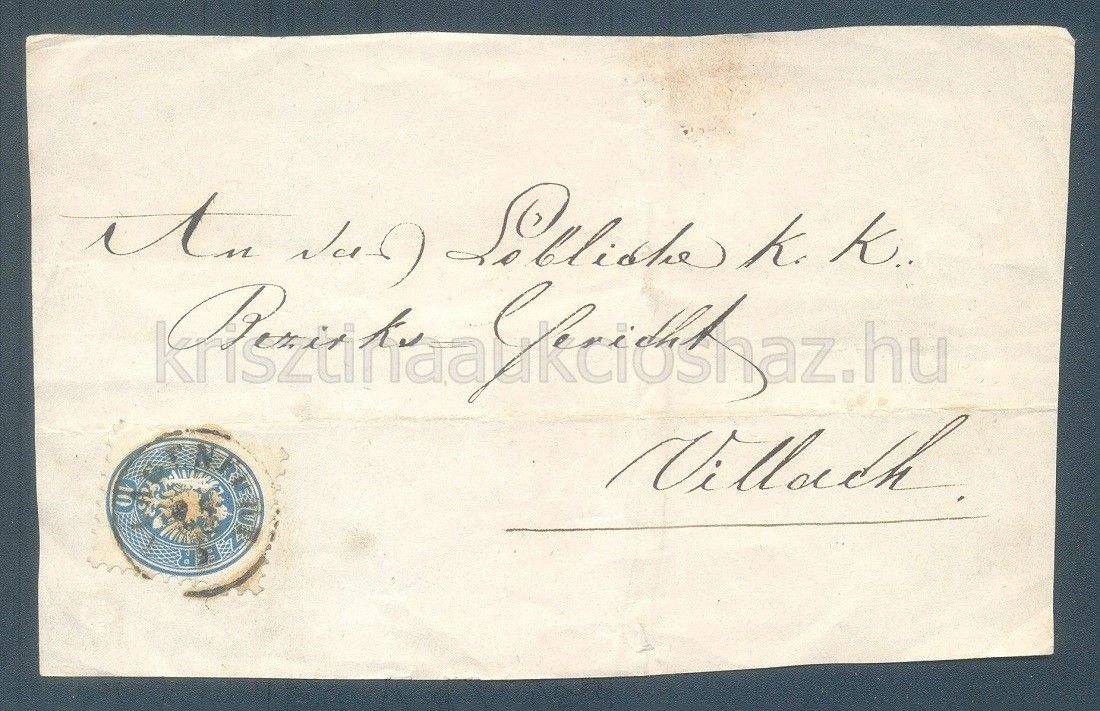 An das Löbliche k. k.
Bezirks=Gericht
krisztinaaukcioshaz.hu
Villach.
10 KREUZER 10